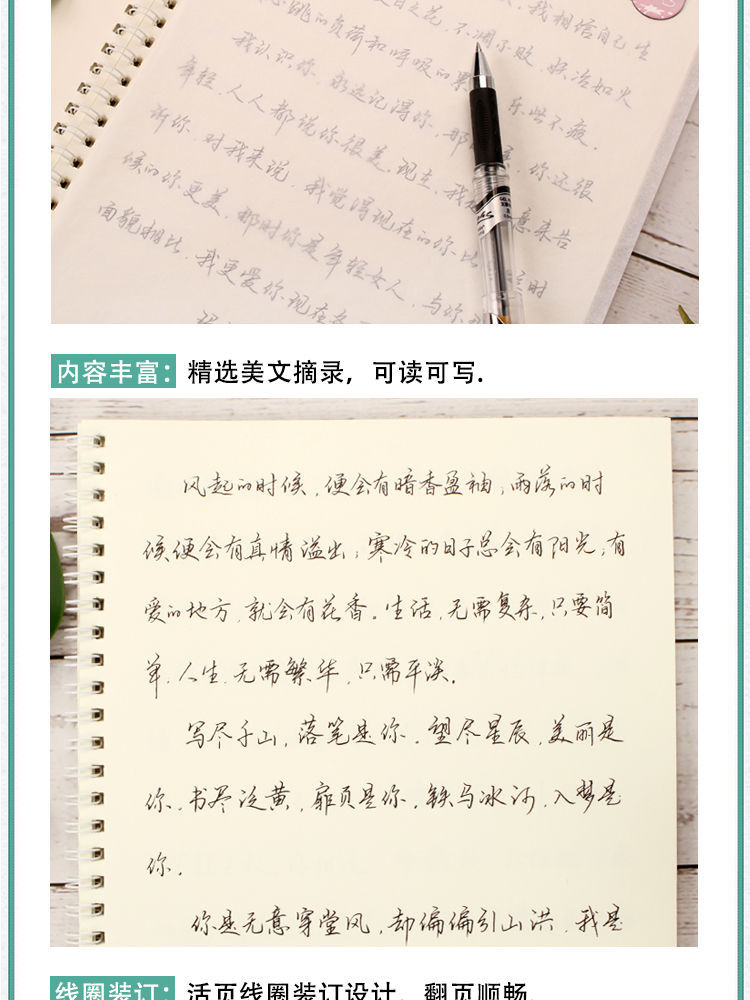 心跳的负荷和呼吸的累 乐此不疲.
我相信自己 生
之花, 不凋不败, 妖冶如火
我认识你, 永远记得你, 那时
年轻, 人人都说你很美, 现在, 我
你还很
诉你, 对我来说, 我觉得现在的你比
意来告
候的你更美, 那时你是年轻女人, 与你
轻时
面貌相比, 我更爱你现在
内容丰富: 精选美文摘录, 可读可写.
风起的时候, 便会有暗香盈袖; 雨落的时
候便会有真情溢出; 寒冷的日子总会有阳光; 有
爱的地方, 就会有花香. 生活, 无需复杂, 只要简
单, 人生, 无需繁华, 只需平淡.
写尽千山, 落笔是你, 望尽星辰, 美丽是
你, 书尽泛黄, 扉页是你, 铁马冰河, 入梦是
你.
你是无意穿堂风, 却偏偏引山洪, 我是
线圈装订: 活页线圈装订设计, 翻页顺畅.